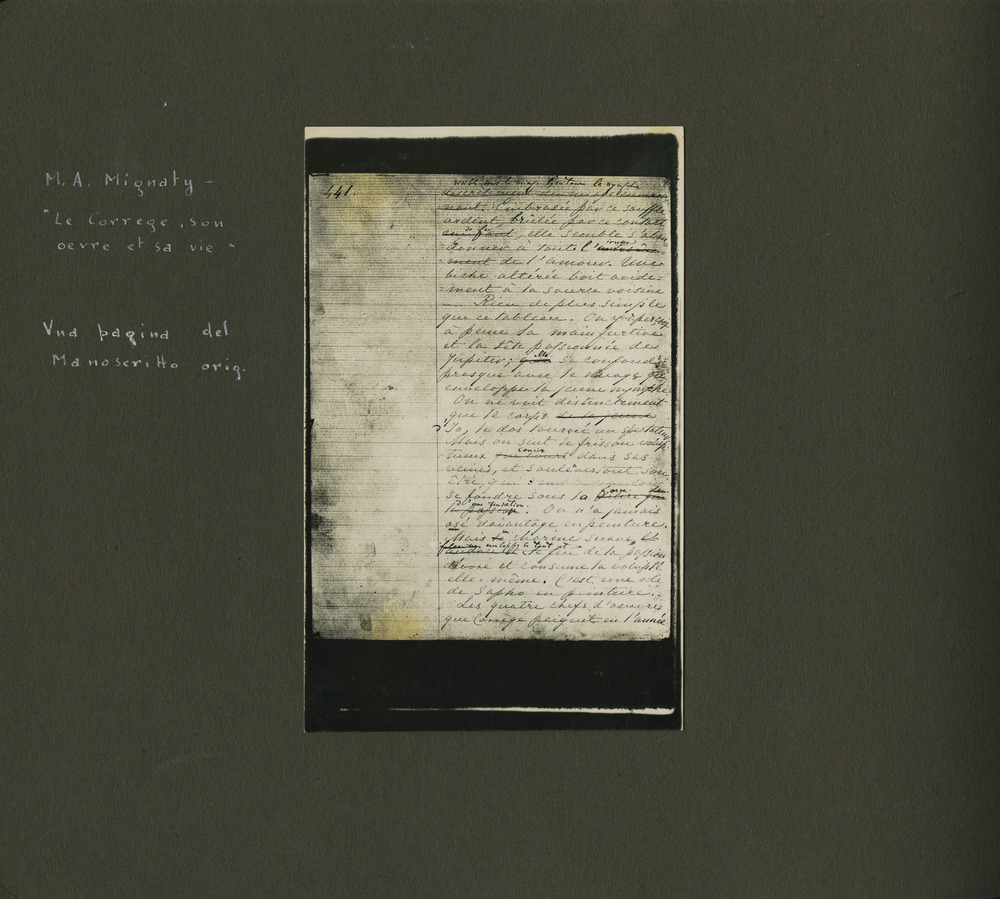 M. A. Mignaty –
"Le Correge, son
oevre et sa vie"
Una pagina del
Manoscritto orig.
441.
ment. Embrasée par ce souffle
ardent, brûlée par ce contact
elle semble s'aban-
donner à toute l'
ment de l'amour. Une
biche altérée boit avide-
ment à la source voisine
— Rien de plus simple
que ce tableau. On y aperçoit
à peine la main furtive
et la tête passionnée de
Jupiter; elle se confond
presque avec le nuage qui
enveloppe la jeune nymphe
On ne voit distinctement
que le corps de la jeune
Io, le dos tourné au spectateur.
Mais on sent le frisson volup-
tueux courir dans ses
veines, et soulever tout son
être, qui semble
se fondre sous la
la passion. On n'a jamais
osé davantage en peinture.
Mais charme suave, et
enveloppe le tout et
le feu de la passion
dévore et consume la volupté
elle-même. C'est une ode
de Sapho en peinture.
Les quatre chefs d'oeuvre
que Corrège peignit en l'année